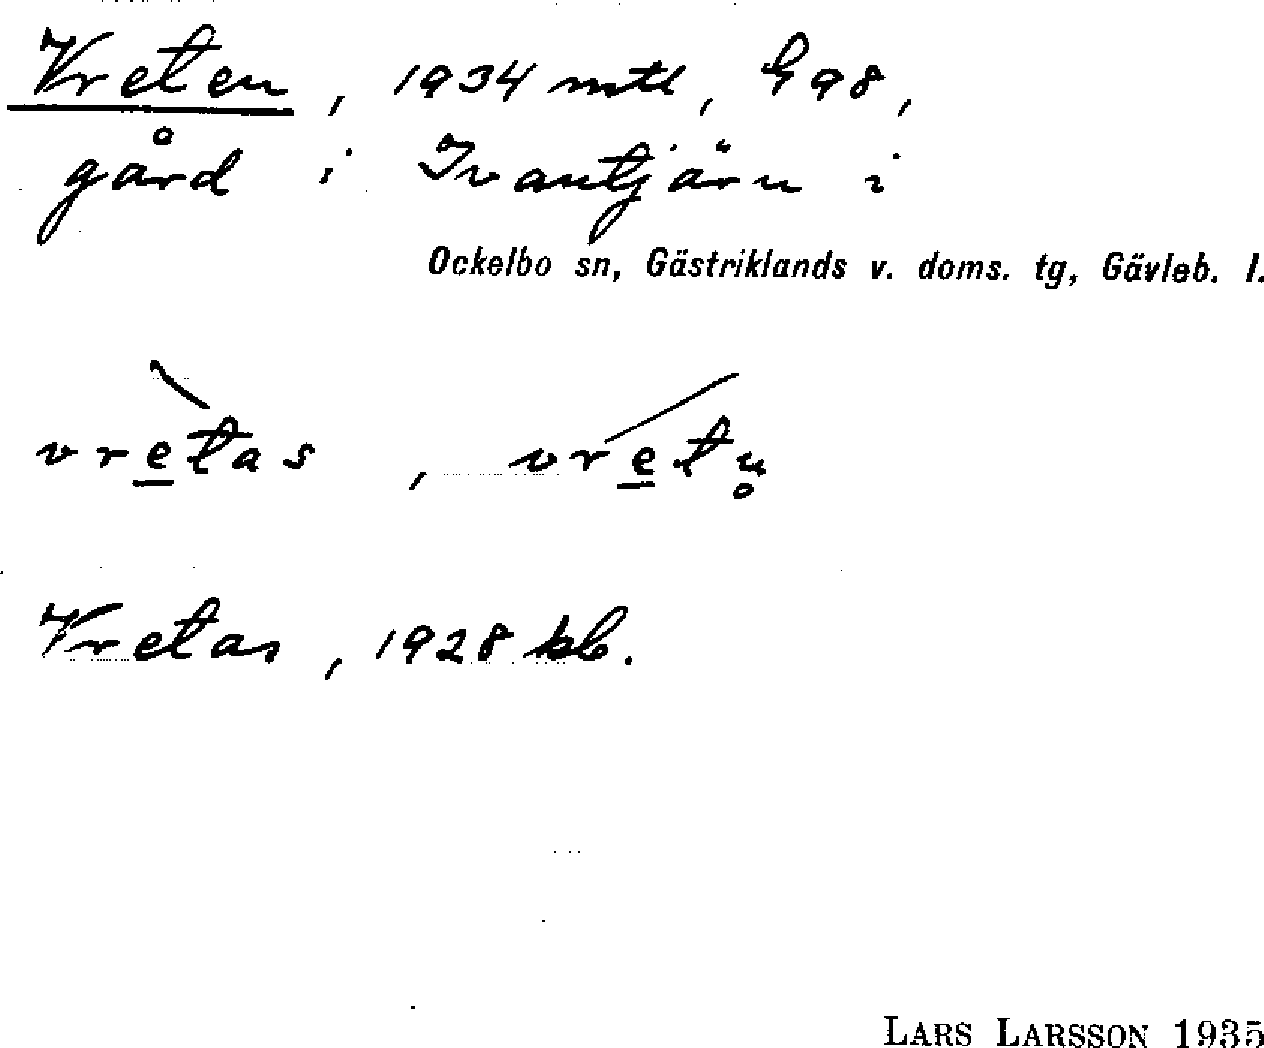 Vreten, 1934 mtl, G 98,
gård i Ivantjärn i
Ockelbo sn, Gästriklands v. doms. tg, Gävleb. l.
vre̲tas, vre̲tn̥
Vretas, 1928 kb.
LARS LARSSON 1935